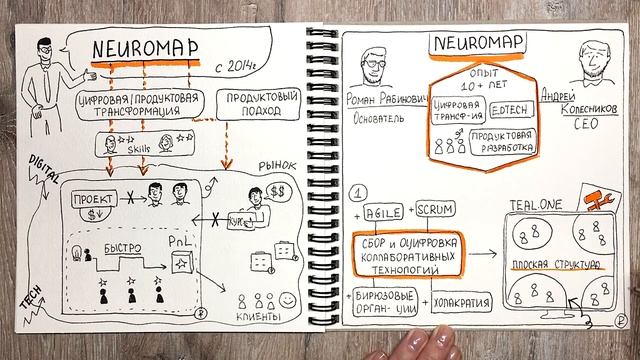 NEUROMAP
с 2014г
ЦИФРОВАЯ/ПРОДУКТОВАЯ
ТРАНСФОРМАЦИЯ
ПРОДУКТОВЫЙ
ПОДХОД
Skills
DIGITAL
РЫНОК
ПРОЕКТ
$
X
$$
X
КУРС
БЫСТРО
PnL
TECH
КЛИЕНТЫ
NEUROMAP
ОПЫТ
10+ ЛЕТ
ЦИФРОВАЯ
ТРАНСФ-ИЯ
EDTECH
ПРОДУКТОВАЯ
РАЗРАБОТКА
Роман Рабинович
Основатель
Андрей
Колесников
CEO
1
+ AGILE
+ SCRUM
СБОР и ОЦИФРОВКА
КОЛЛАБОРАТИВНЫХ
ТЕХНОЛОГИЙ
+ БИРЮЗОВЫЕ
ОРГАН-УЦИИ
+ ХОЛАКРАТИЯ
TEAL.ONE
ПЛОСКАЯ СТРУКТУРА